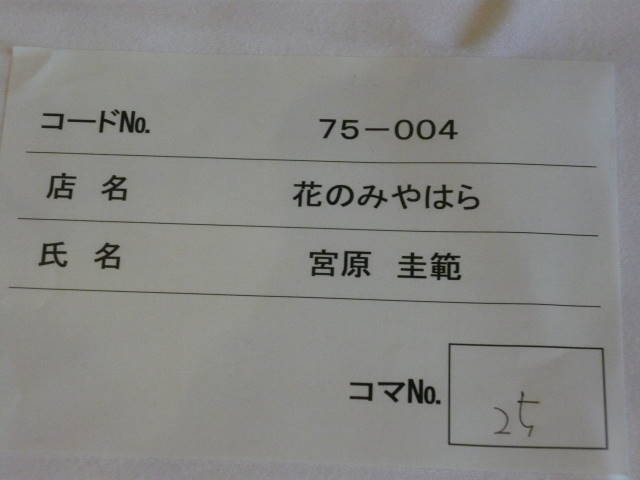 コードNo. 75-004
店名 花のみやはら
氏名 宮原 圭範
コマNo. 25